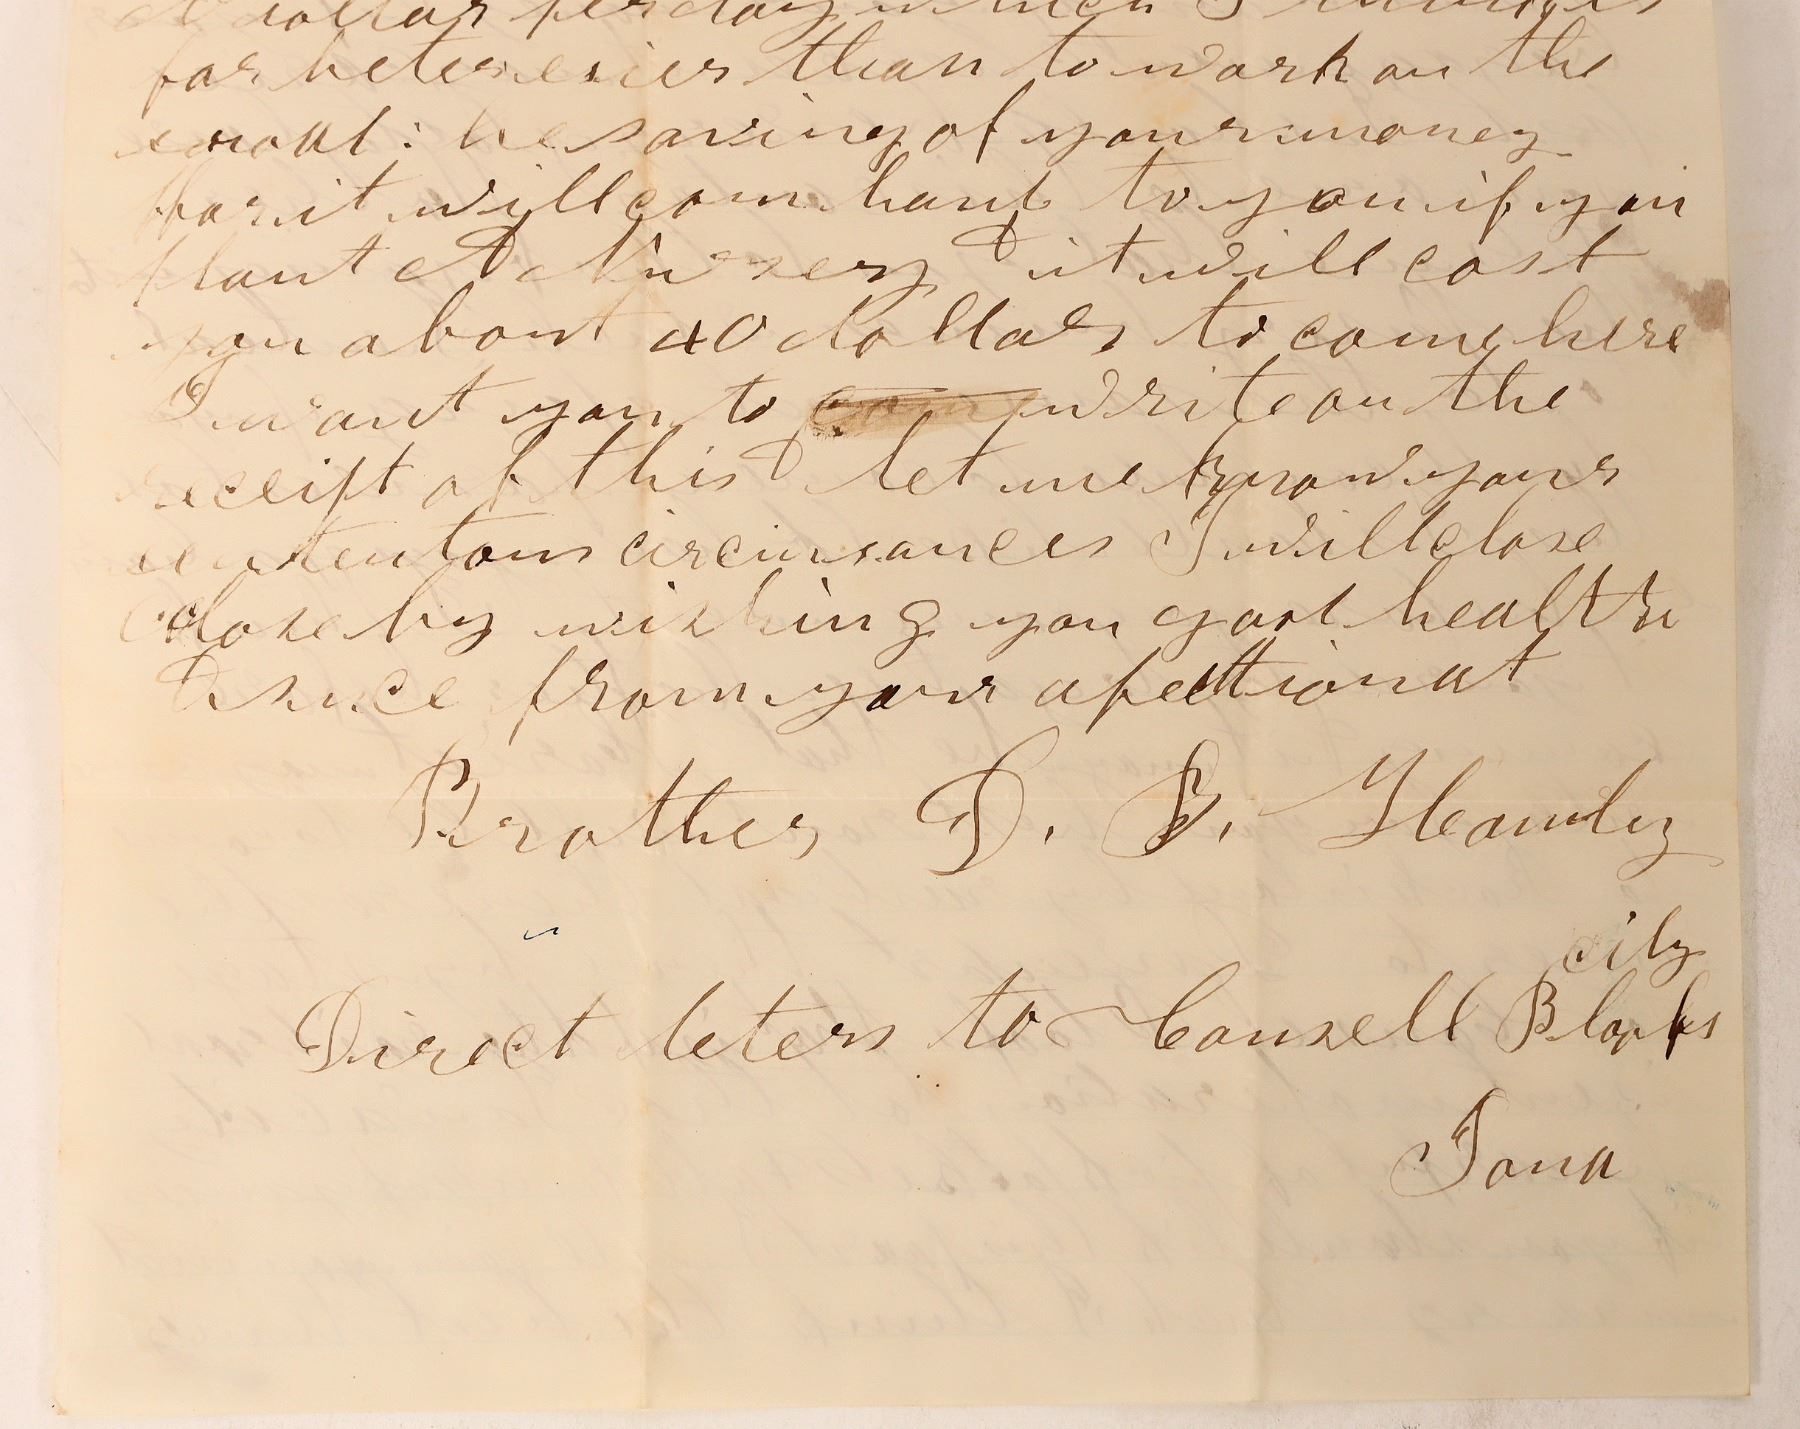 dollar per day which I think is
far beter esier than to work on the
roat : be saving of your money
for it will com hand to you if you
plant A Nursery & it will cost
you about 40 dollars to come here
I want you to write on the
receipt of this & let me know your
ententons circumsances I will close
close by wishing you goot health &
from your afecttionat
Brother D. B. Hamby
city
Direct leters to Counsell Bloofs
Ioua